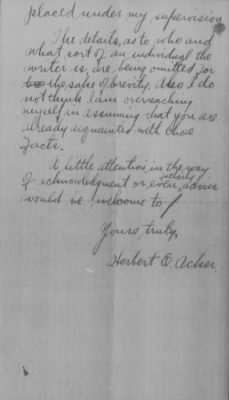 placed under my supervision
The details, as to who and
what sort of an individual the
writer is, are being omitted for
the sake of brevity. Also I do
not think I am overreaching
myself in assuming that you are
already acquainted with those
facts.
A little attention in the way
of acknowledgment or even
would be welcome to
Yours truly,
Herbert O. Acker.